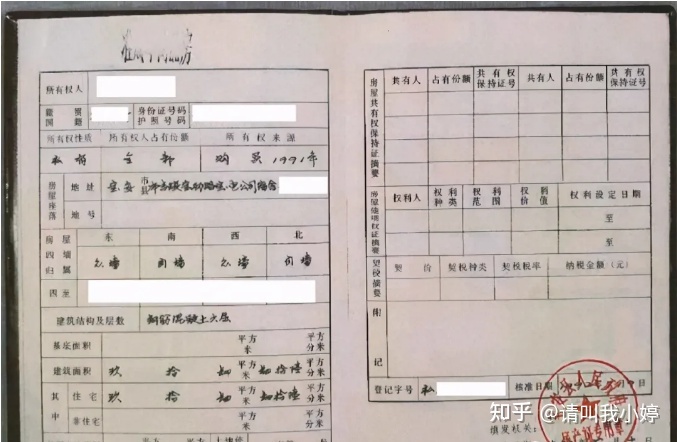 准成本商品房
所有权人
籍贯
国籍
身份证号码
护照号码
所有权性质 所有权人占有份额 所有权来源
私有 全部 购买1991年
房屋座落
地址 宝安 市县
地号
房屋四墙归属
东 南 西 北
四至
建筑结构及层数 钢筋混凝土六层
基底面积 平方米 平方分米
建筑面积 玖 拾 平方米 平方分米
其中
住宅 玖 拾 平方米 平方分米
非住宅 平方米 平方分米
房屋共有权保持证摘要
共有人 占有份额 共有权保持证号 共有人 占有份额 共有权保持证号
房屋他项权证摘要
权利人 权利种类 权利范围 权利价值 权利设定日期
至
至
契税摘要
契价 契税种类 契税税率 纳税金额（元）
附
记
登记字号 私 核准日期
填发机关：
知乎 @请叫我小婷